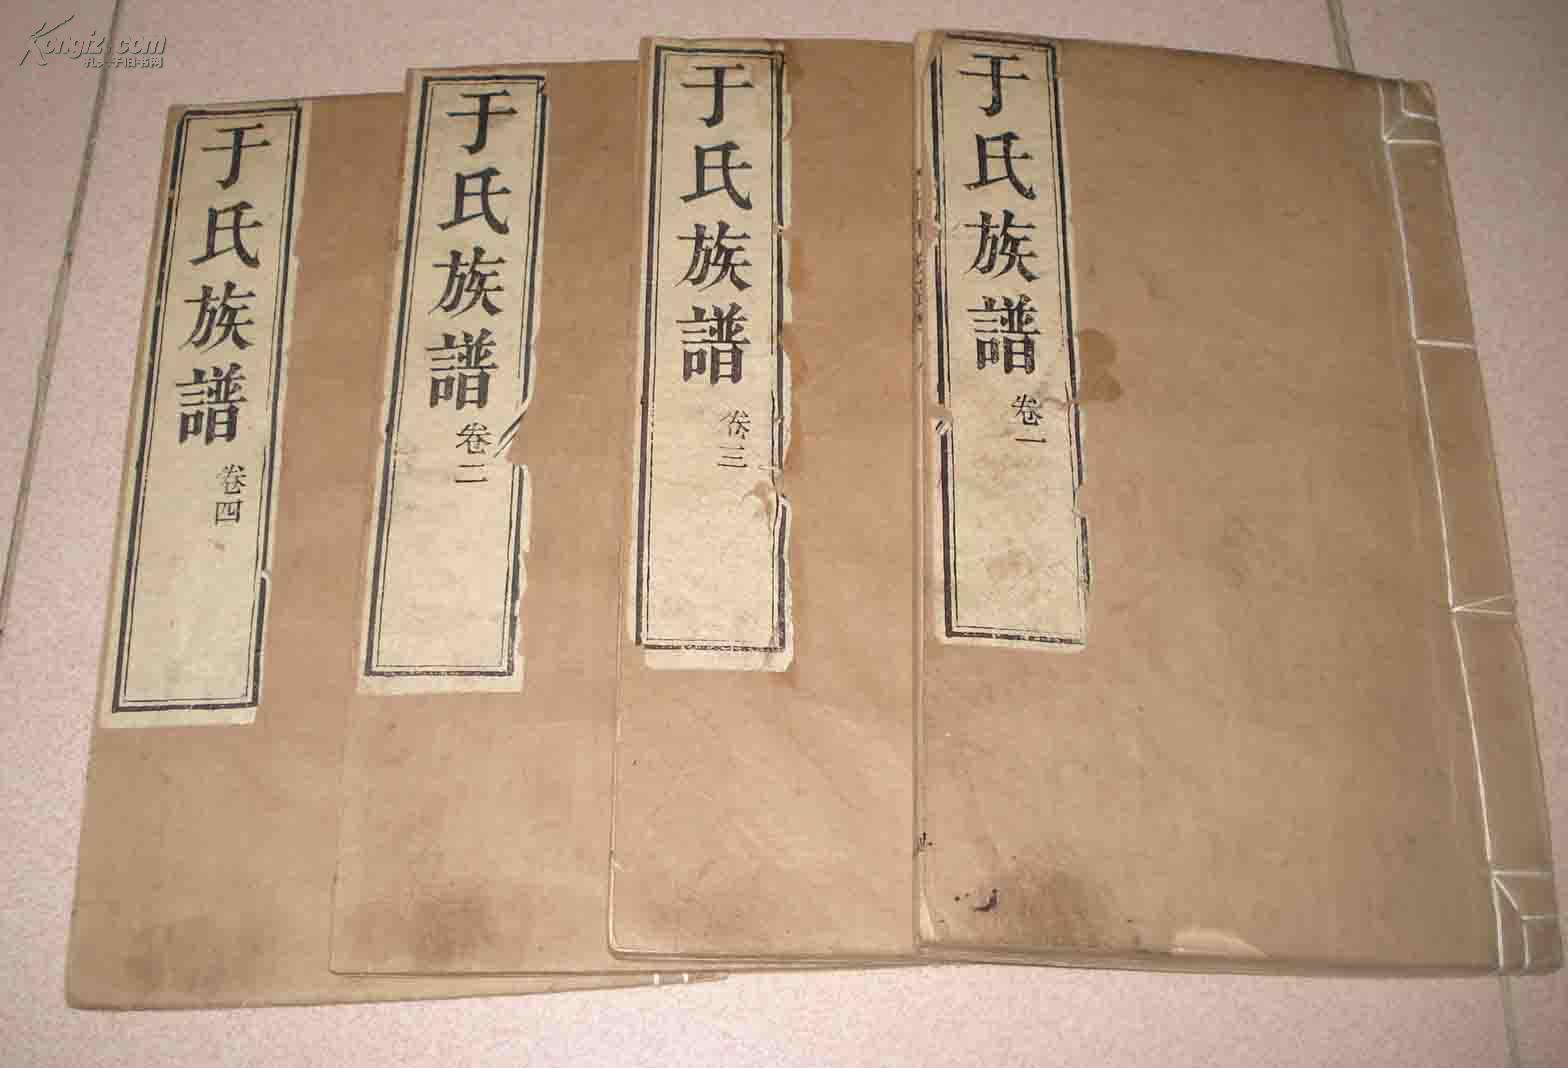 Kongfz.com
孔夫子旧书网
于氏族譜
卷四
于氏族譜
卷二
于氏族譜
卷三
于氏族譜
卷一